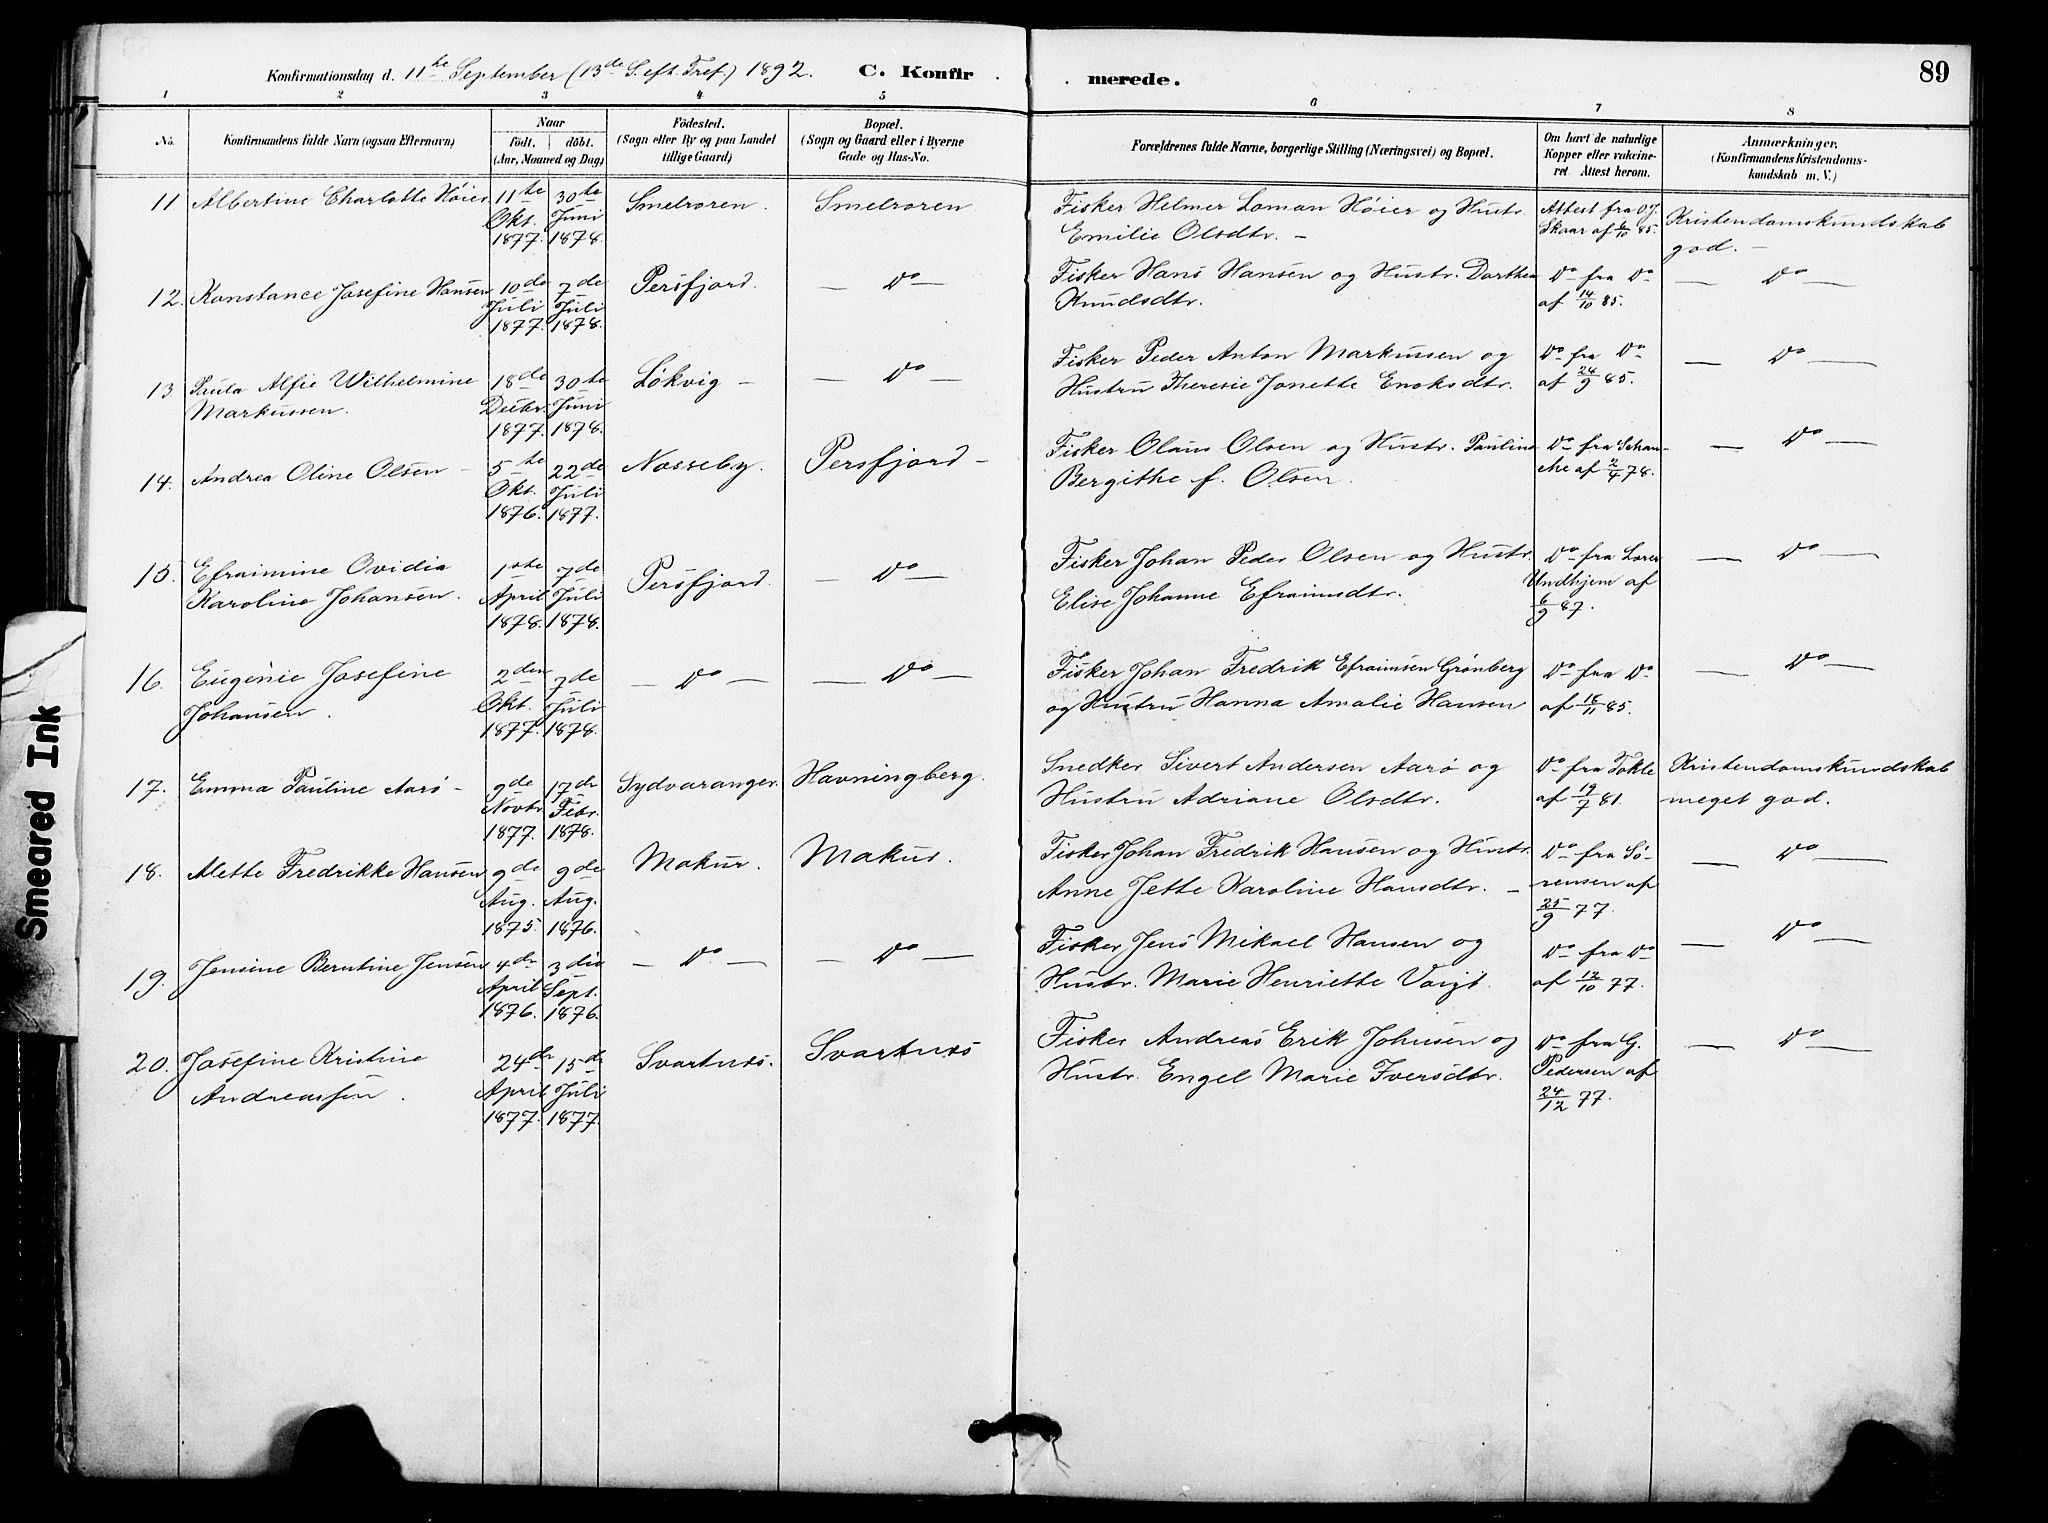 Konfirmationsdag d. 11te September (13de S. eft. Tref.) 1892. C. Konfir merede. 89
1 2 3 4 5 6 7 8
No. Konfirmandens fulde Navn (ogsaa Efternavn)
Naar
födt. döbt.
(Aar, Maaned og Dag)
Födested.
(Sogn eller By og paa Landet
tillige Gaard)
Bopæl.
(Sogn og Gaard eller i Byerne
Gade og Hus-No.
Forældrenes fulde Navne, borgerlige Stilling (Næringsvei) og Bopæl.
Om havt de naturlige
Kopper eller vakcine-
ret. Attest herom.
Anmærkninger.
(Konfirmandens Kristendoms-
kundskab m. V.)
11. Albertine Charlotte Höier 11te Okt. 1877. 30te Juni 1878. Smelroren. Smelroren Fisker Helmer Loman Höier og Hustr.
Emilie Olsdtr. – Attest fra O. J.
Skaar af 6/10 85. Kristendomskundskab
god. –
12. Konstance Josefine Hansen 10de Juli 1877. 7de Juli 1878. Persfjord. — Do — Fisker Hans Hansen og Hustr. Dorthea
Knudsdtr. Do fra Do
af 14/10 85. — Do —
13. Paula Alfie Wilhelmine
Markussen. 18de Decbr. 1877. 30te Juni 1878. Løkvig – — Do — Fisker Peder Anton Markussen og
Hustru Theresie Jonette Enoksdtr. Do fra Do
af 24/9 85. — Do —
14. Andrea Oline Olsen – 5te Okt. 1876. 22de Juli 1877. Nesseby. Persfjord – Fisker Olaus Olsen og Hustr. Pauline
Bergithe f. Olsen. Do fra Schan-
che af 2/4 78. — Do —
15. Efraimine Ovidia
Karoline Johansen. 1ste April 1878. 7de Juli 1878. Persfjord. — Do — Fisker Johan Peder Olsen og Hustr.
Elise Johanne Efraimsdtr. Do fra
Undhjem af
6/9 87. — Do —
16. Eugenie Josefine
Johansen. 2den Okt. 1877. 7de Juli 1878. — Do — — Do — Fisker Johan Fredrik Efraimsen Grønberg
og Hustru Hanna Amalie Hansen Do fra Do
af 18/11 85. — Do —
17. Emma Pauline Aarø – 9de Novbr. 1877. 17de Febr. 1878. Sydvaranger. Havningberg. Snedker Sivert Andersen Aarø og
Hustru Adriane Olsdtr. Do fra Tokle
af 19/7 81. Kristendomskundskab
meget god.
18. Alette Fredrikke Hansen 9de Aug. 1875. 9de Aug. 1876. Makur. Makur. Fisker Johan Fredrik Hansen og Hustr.
Anne Jette Karoline Hansdtr. – Do fra Sö-
rensen af
25/9 77. — Do —
19. Jensine Berntine Jensen 4de April 1876. 3die Sept. 1876. — Do — — Do — Fisker Jens Mikael Hansen og
Hustr. Marie Henriette Voigt. Do fra Do
af 12/10 77. — Do —
20. Josefine Kristine
Andreassen. 24de April 1877. 15de Juli 1877. Svartnes. Svartnes Fisker Andreas Erik Johnsen og
Hustr. Engel Marie Iversdtr. Do fra G.
Pedersen af
24/12 77. — Do —
Smeared Ink